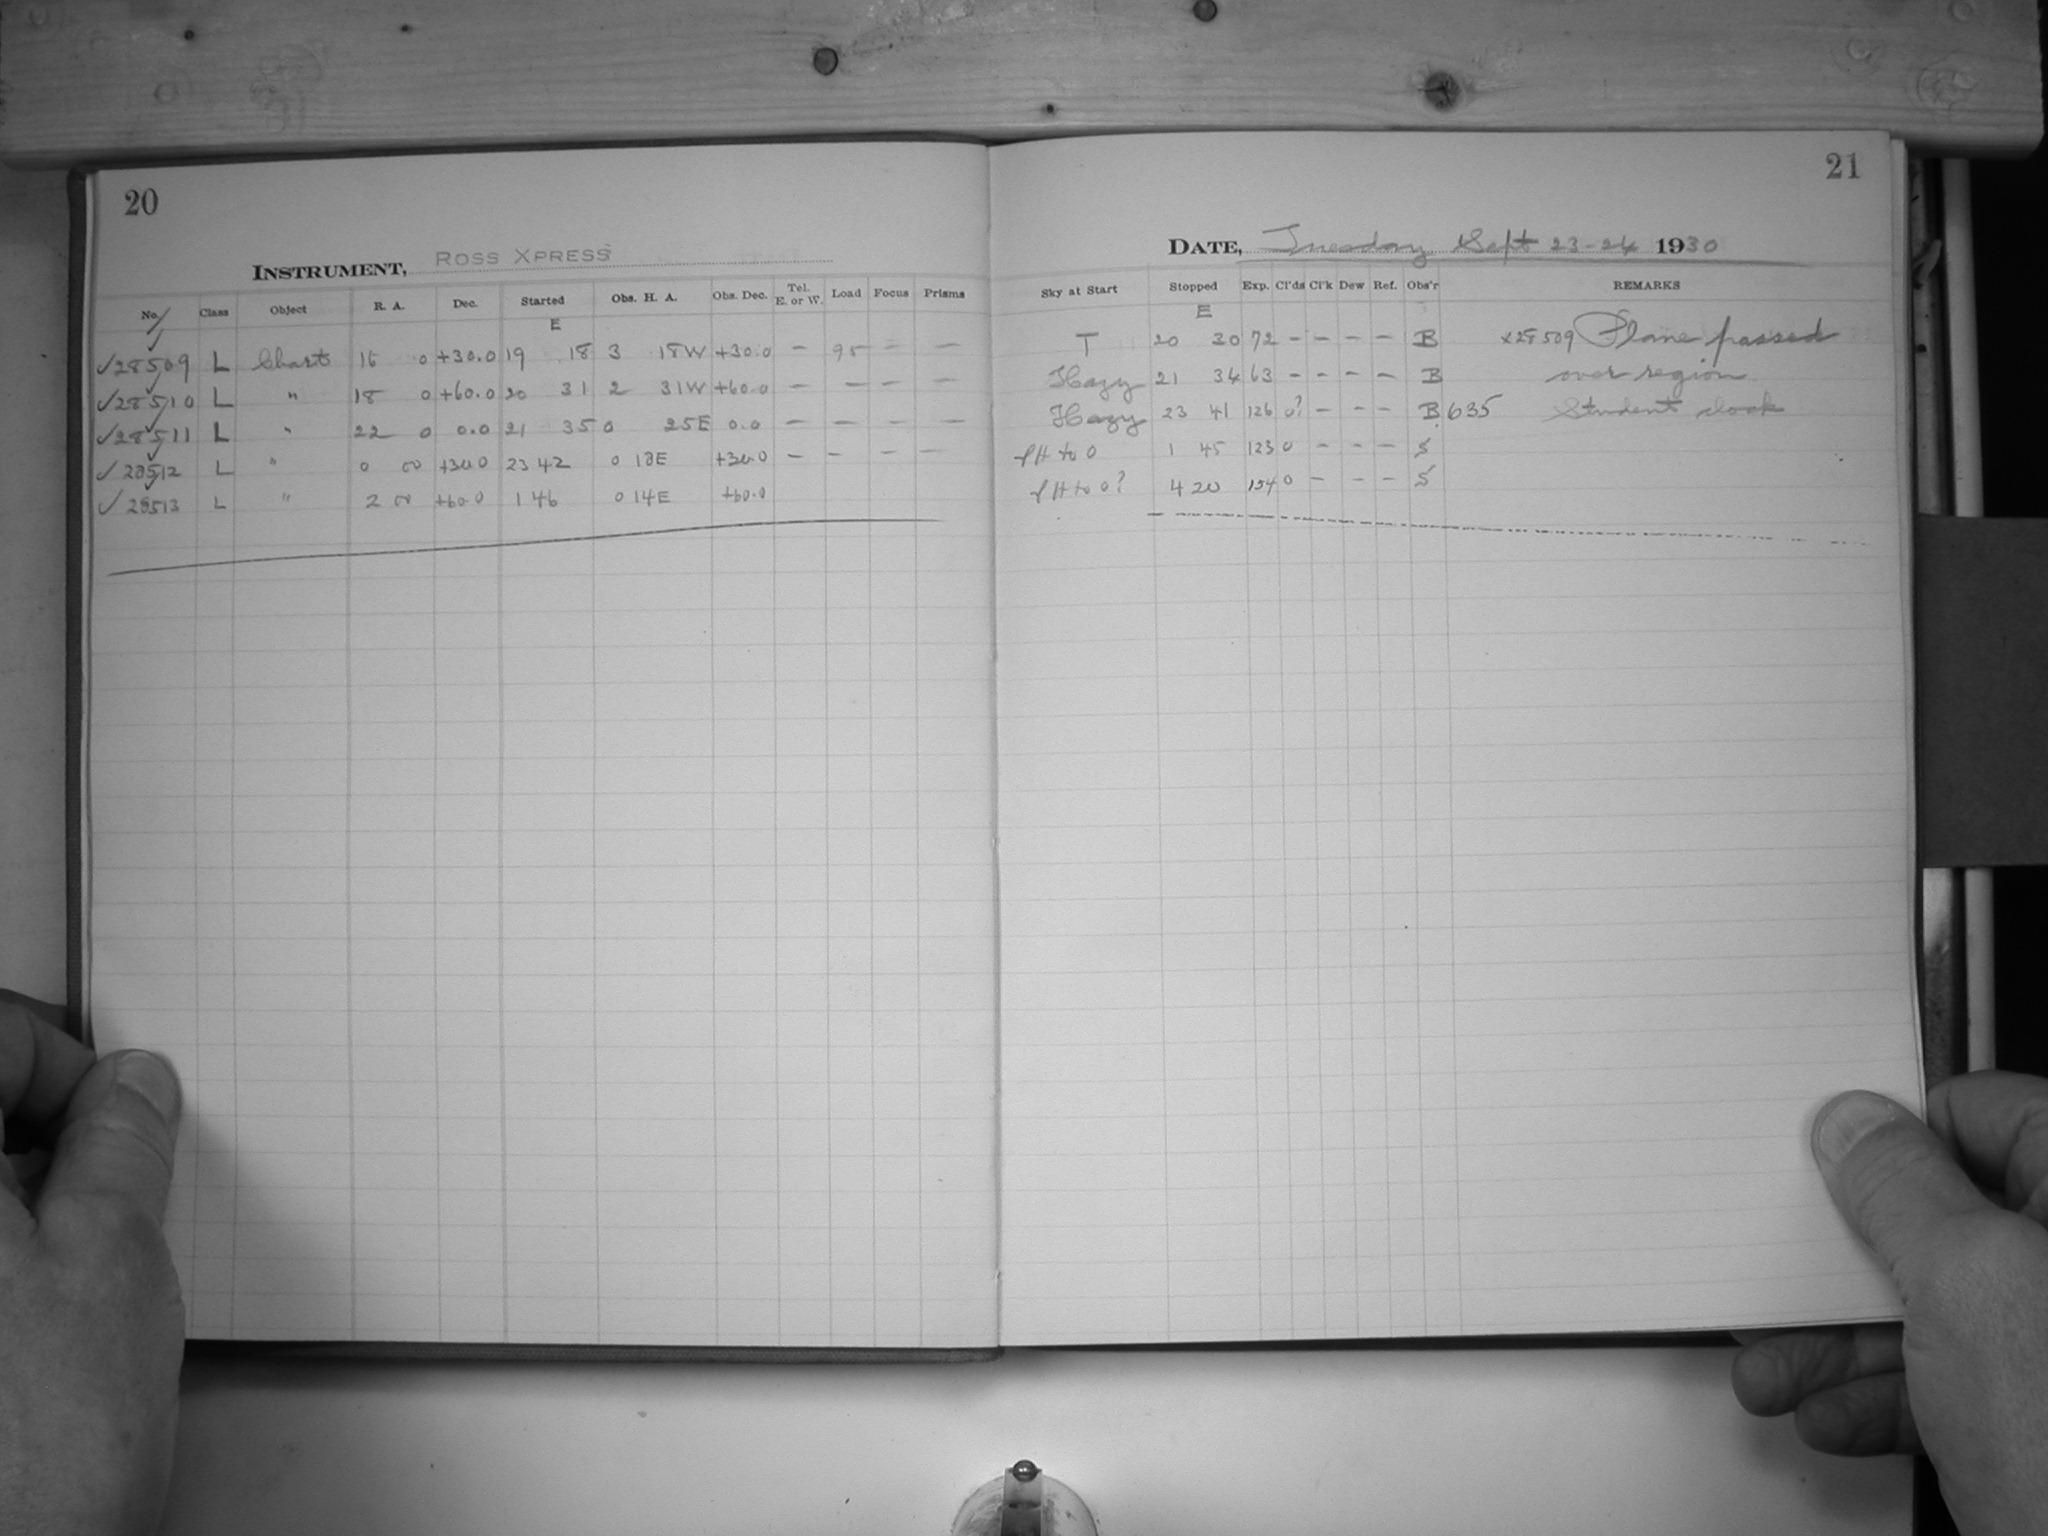 20
INSTRUMENT, ROSS XPRESS
No. Class Object R. A. Dec. Started Obs. H. A. Obs. Dec. Tel. E. or W. Load Focus Prisms
E
✓28509 L Chart 16 0 +30.0 19 18 3 18W +30.0 – 95 – –
✓28510 L " 18 0 +60.0 20 31 2 31W +60.0 – – – –
✓28511 L " 22 0 0.0 21 35 0 25E 0.0 – – – –
✓28512 L " 0 00 +30.0 23 42 0 18E +30.0 – – – –
✓28513 L " 2 00 +60.0 1 46 0 14E +60.0
21
DATE, Tuesday Sept 23-24 1930
Sky at Start Stopped Exp. Cl'ds Cl'k Dew Ref. Obs'r REMARKS
E
T 20 30 72 – – – – B x28509 Plane passed
Hazy 21 34 63 – – – – B over region
Hazy 23 41 126 0? – – – B 635 Student clock
H to 0 1 45 123 0 – – – S
H to 0? 4 20 154 0 – – – S